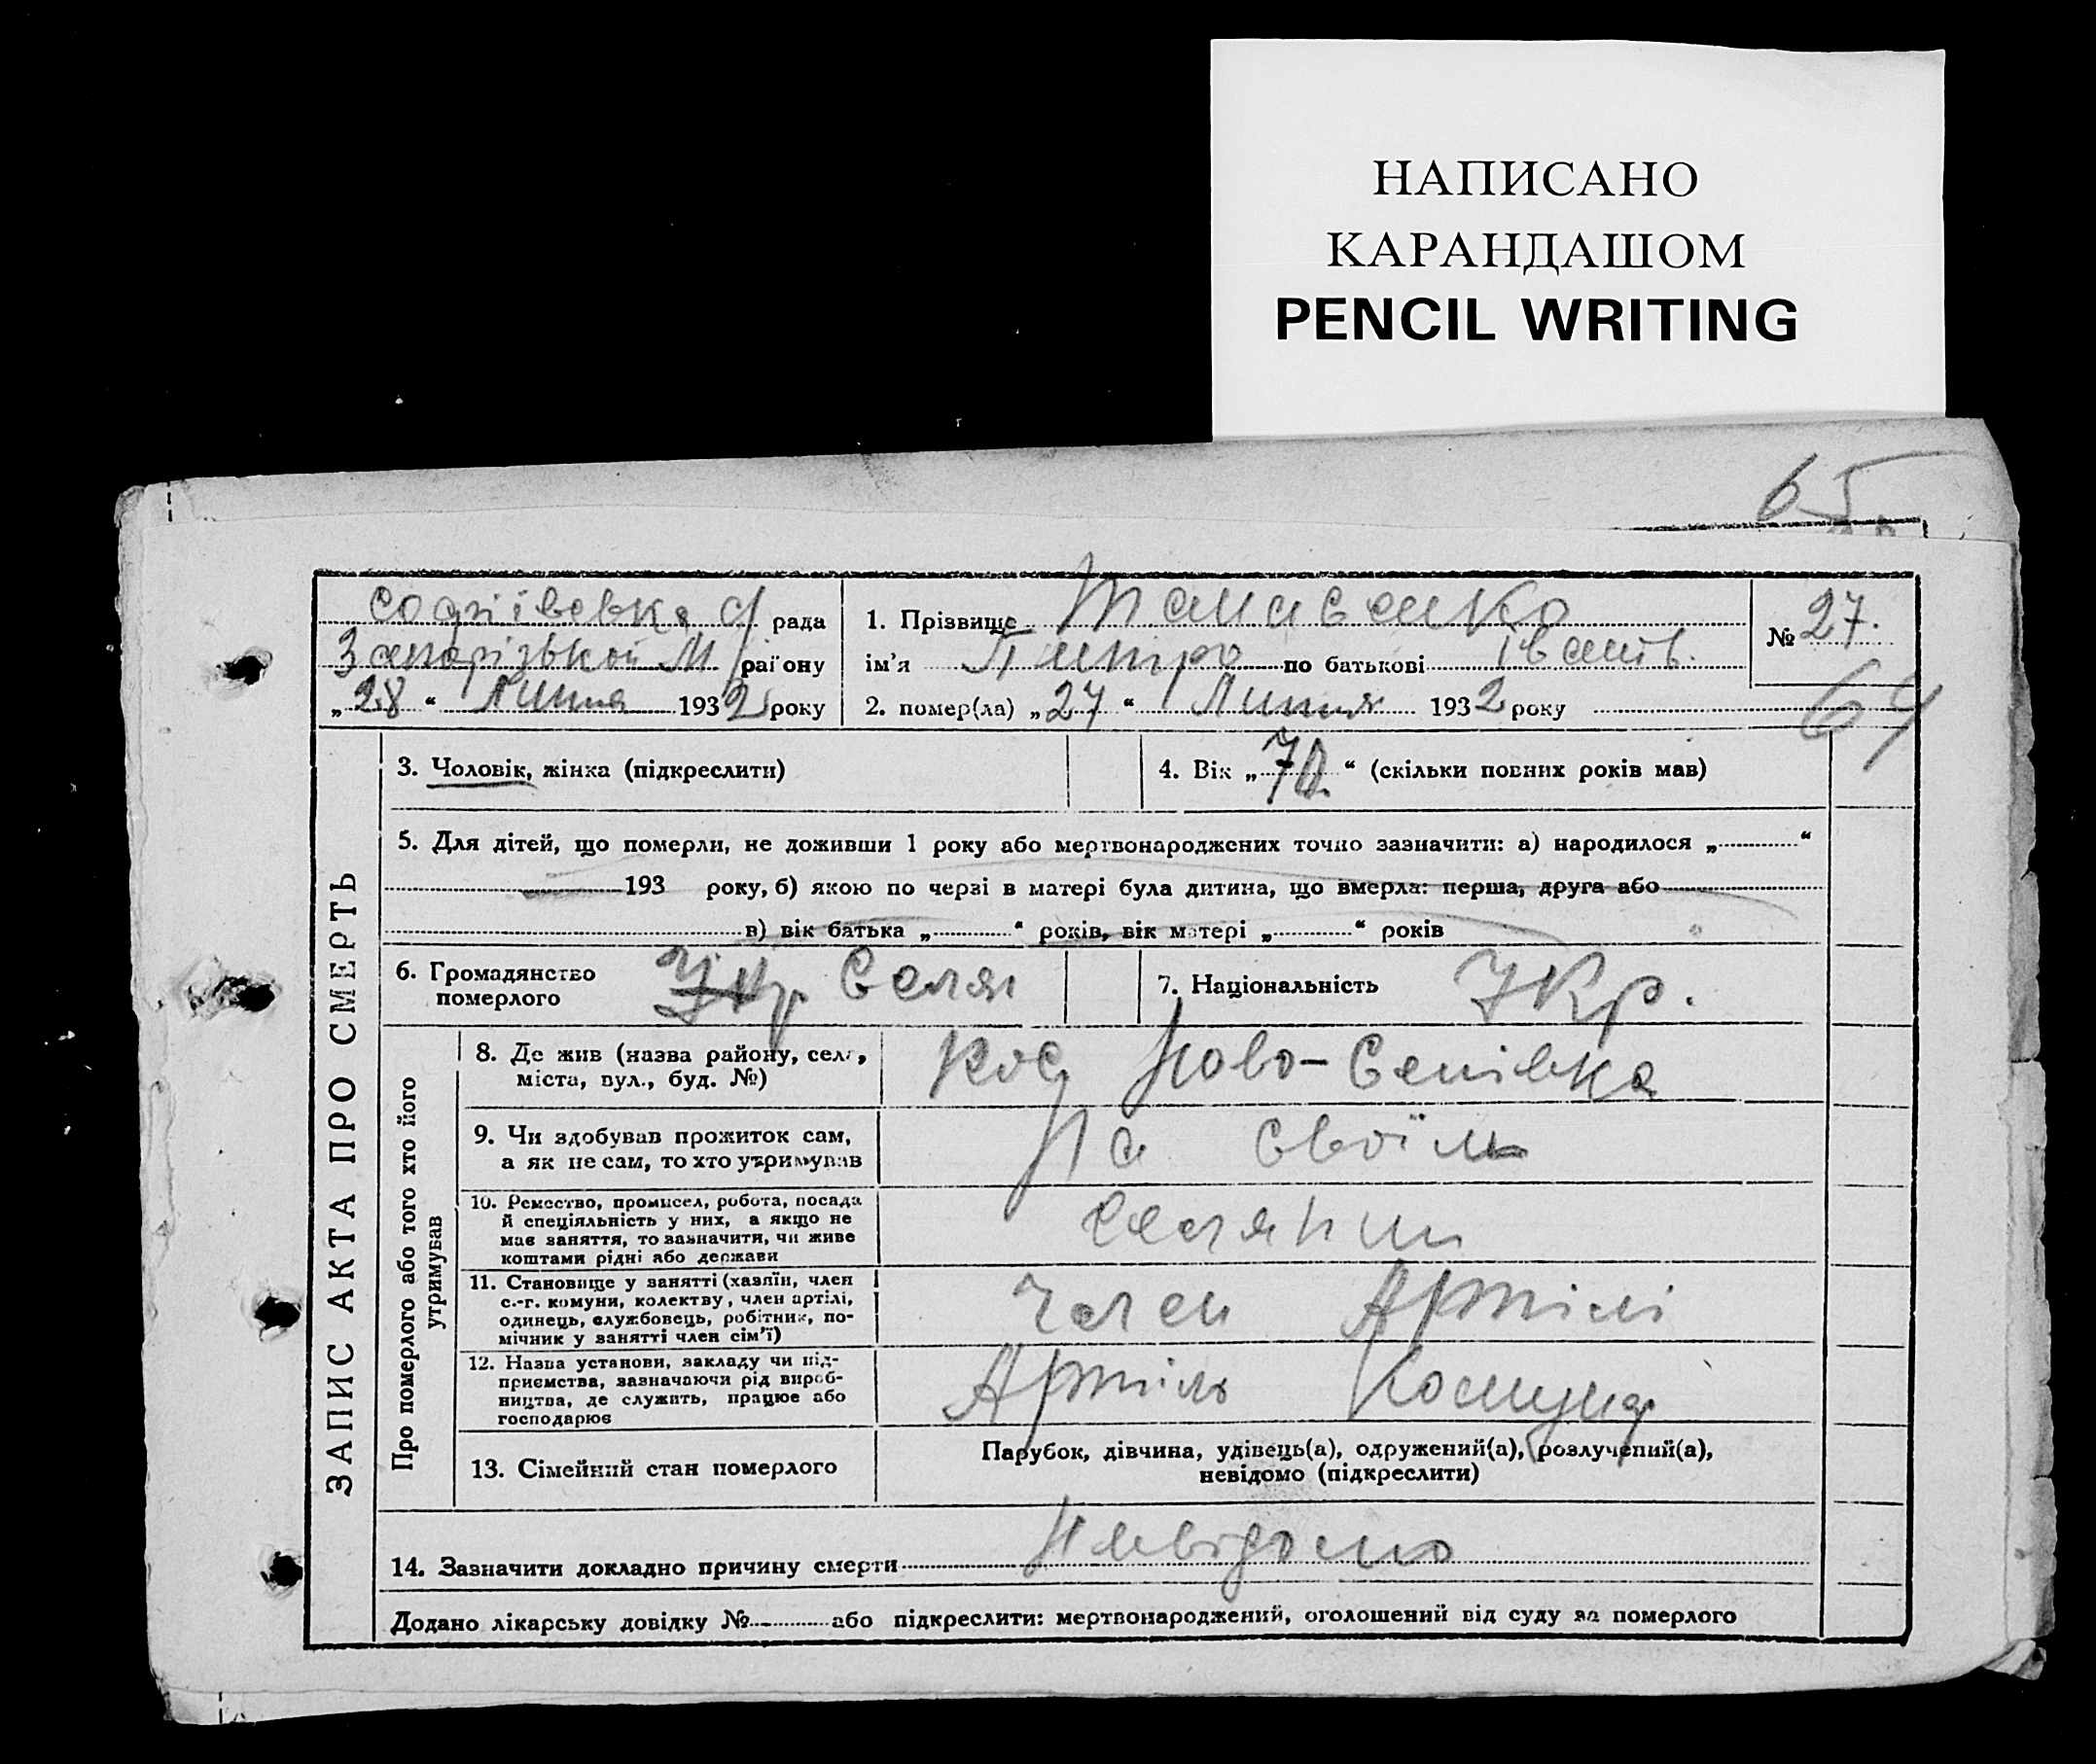 НАПИСАНО
КАРАНДАШОМ
PENCIL WRITING
65
софіївська с/рада
Запорізької М/району
„28“ Липня 1932 року
1. Прізвище
ім’я Питро по батькові Іванів.
2. помер(ла) „27“ Липня 1932 року
№ 27.
64
ЗАПИС АКТА ПРО СМЕРТЬ
3. Чоловік, жінка (підкреслити)
4. Вік „70“ (скільки повних років мав)
5. Для дітей, що померли, не доживши 1 року або мертвонароджених точно зазначити: а) народилося „ “
193 року, б) якою по черзі в матері була дитина, що вмерла: перша, друга або
в) вік батька „ “ років, вік матері „ “ років
6. Громадянство
померлого Укр Селян
7. Національність Укр.
Про померлого або того хто його
утримував
8. Де жив (назва району, села,
міста, вул., буд. №)
Ново-
9. Чи здобував прожиток сам,
а як не сам, то хто утримував
На своїм
10. Ремество, промисел, робота, посада
й спеціяльність у них, а якщо не
має заняття, то зазначити, чи живе
коштами рідні або держави
Селянин
11. Становище у занятті (хазяїн, член
с.-г. комуни, колективу, член артілі,
одинець, службовець, робітник, по-
мічник у занятті член сім’ї)
Член Артілі
12. Назва установи, закладу чи під-
приємства, зазначаючи рід вироб-
ництва, де служить, працює або
господарює
Артіль Комунар
13. Сімейний стан померлого
Парубок, дівчина, удівець(а), одружений(а), розлучений(а),
невідомо (підкреслити)
14. Зазначити докладно причину смерти Невідомо
Додано лікарську довідку № або підкреслити: мертвонароджений, оголошений від суду за померлого